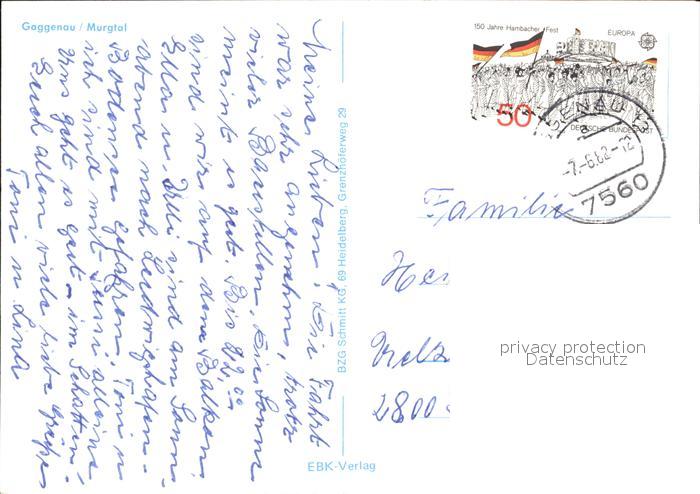 Gaggenau / Murgtal
Meine Lieben! Die Fahrt
war sehr angenehm, trotz
vieler Baustellen, die Sonne
meinte es gut. Bis 22.00
sind wir auf dem Balkon.
Ella u. Willi sind am Sonn-
abend nach Ludwigshafen-
gefahren. Toni u
ich sind mit alleine
Uns geht es gut - im Schatten.-
Euch allen viele liebe Grüße
Toni u. Lina
BZG Schmitt KG, 69 Heidelberg, Grenzhöferweg 29
EBK-Verlag
150 Jahre Hambacher Fest
EUROPA
50
DEUTSCHE BUNDESPOST
GGENAU 2
-7.-6.82-12
7560
Familie
2800
privacy protection
Datenschutz